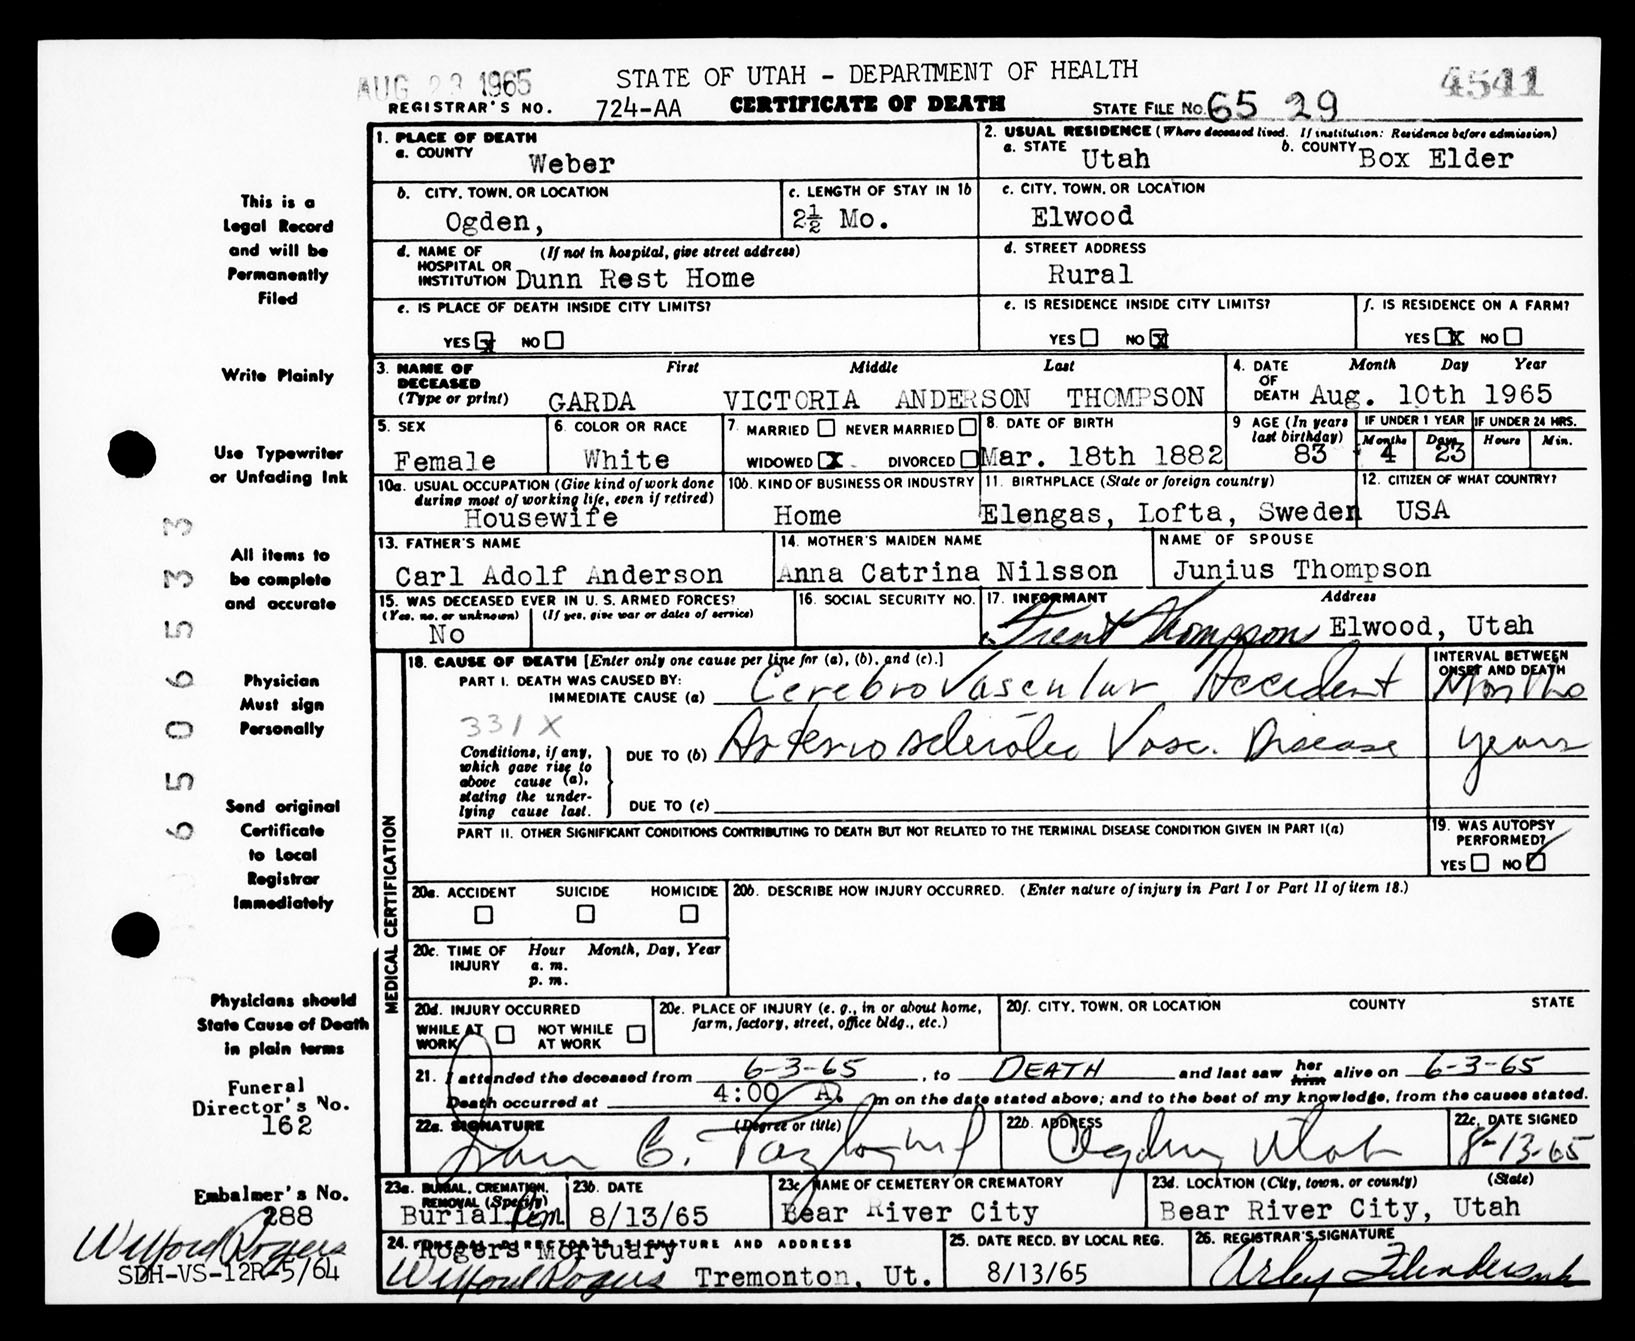 AUG 23 1965
STATE OF UTAH – DEPARTMENT OF HEALTH
4541
REGISTRAR'S NO. 724-AA CERTIFICATE OF DEATH STATE FILE No. 65 29
This is a
Legal Record
and will be
Permanently
Filed
Write Plainly
Use Typewriter
or Unfading Ink
All items to
be complete
and accurate
Physician
Must sign
Personally
Send original
Certificate
to Local
Registrar
Immediately
Physicians should
State Cause of Death
in plain terms
Funeral
Director's No.
162
Embalmer's No.
288
Wilford Rogers
SDH-VS-12R-5/64
6506533
1. PLACE OF DEATH
a. COUNTY Weber
2. USUAL RESIDENCE (Where deceased lived. If institution: Residence before admission)
a. STATE Utah b. COUNTY Box Elder
b. CITY, TOWN, OR LOCATION
Ogden,
c. LENGTH OF STAY IN 1b
2½ Mo.
c. CITY, TOWN, OR LOCATION
Elwood
d. NAME OF HOSPITAL OR INSTITUTION (If not in hospital, give street address)
Dunn Rest Home
d. STREET ADDRESS
Rural
e. IS PLACE OF DEATH INSIDE CITY LIMITS?
YES X NO
e. IS RESIDENCE INSIDE CITY LIMITS?
YES NO X
f. IS RESIDENCE ON A FARM?
YES X NO
3. NAME OF DECEASED (Type or print) First Middle Last
GARDA VICTORIA ANDERSON THOMPSON
4. DATE OF DEATH Month Day Year
Aug. 10th 1965
5. SEX
Female
6. COLOR OR RACE
White
7. MARRIED NEVER MARRIED
WIDOWED X DIVORCED
8. DATE OF BIRTH
Mar. 18th 1882
9 AGE (In years last birthday)
83
IF UNDER 1 YEAR IF UNDER 24 HRS.
Months Days Hours Min.
4 23
10a. USUAL OCCUPATION (Give kind of work done during most of working life, even if retired)
Housewife
10b. KIND OF BUSINESS OR INDUSTRY
Home
11. BIRTHPLACE (State or foreign country)
Elengas, Lofta, Sweden
12. CITIZEN OF WHAT COUNTRY?
USA
13. FATHER'S NAME
Carl Adolf Anderson
14. MOTHER'S MAIDEN NAME
Anna Catrina Nilsson
NAME OF SPOUSE
Junius Thompson
15. WAS DECEASED EVER IN U. S. ARMED FORCES?
(Yes, no, or unknown) (If yes, give war or dates of service)
No
16. SOCIAL SECURITY NO.
17. INFORMANT Address
Trent Thompson Elwood, Utah
MEDICAL CERTIFICATION
18. CAUSE OF DEATH [Enter only one cause per line for (a), (b), and (c).]
INTERVAL BETWEEN ONSET AND DEATH
PART I. DEATH WAS CAUSED BY:
IMMEDIATE CAUSE (a) Cerebro Vascular Accident Months
331X
Conditions, if any, which gave rise to above cause (a), stating the underlying cause last.
DUE TO (b) Arteriosclerotic Vasc. Disease years
DUE TO (c)
PART II. OTHER SIGNIFICANT CONDITIONS CONTRIBUTING TO DEATH BUT NOT RELATED TO THE TERMINAL DISEASE CONDITION GIVEN IN PART I(a)
19. WAS AUTOPSY PERFORMED?
YES NO ✓
20a. ACCIDENT SUICIDE HOMICIDE
20b. DESCRIBE HOW INJURY OCCURRED. (Enter nature of injury in Part I or Part II of item 18.)
20c. TIME OF INJURY Hour Month, Day, Year
a. m.
p. m.
20d. INJURY OCCURRED
WHILE AT WORK NOT WHILE AT WORK
20e. PLACE OF INJURY (e. g., in or about home, farm, factory, street, office bldg., etc.)
20f. CITY, TOWN, OR LOCATION COUNTY STATE
21. I attended the deceased from 6-3-65, to DEATH and last saw her him alive on 6-3-65
Death occurred at 4:00 A. m on the date stated above; and to the best of my knowledge, from the causes stated.
22a. SIGNATURE (Degree or title)
C. Taylor MD
22b. ADDRESS
Ogden Utah
22c. DATE SIGNED
8-13-65
23a. BURIAL, CREMATION, REMOVAL (Specify)
Burial
23b. DATE
8/13/65
23c. NAME OF CEMETERY OR CREMATORY
Bear River City
23d. LOCATION (City, town, or county) (State)
Bear River City, Utah
24. FUNERAL DIRECTOR'S SIGNATURE AND ADDRESS
Rogers Mortuary
Wilford Rogers Tremonton, Ut.
25. DATE RECD. BY LOCAL REG.
8/13/65
26. REGISTRAR'S SIGNATURE